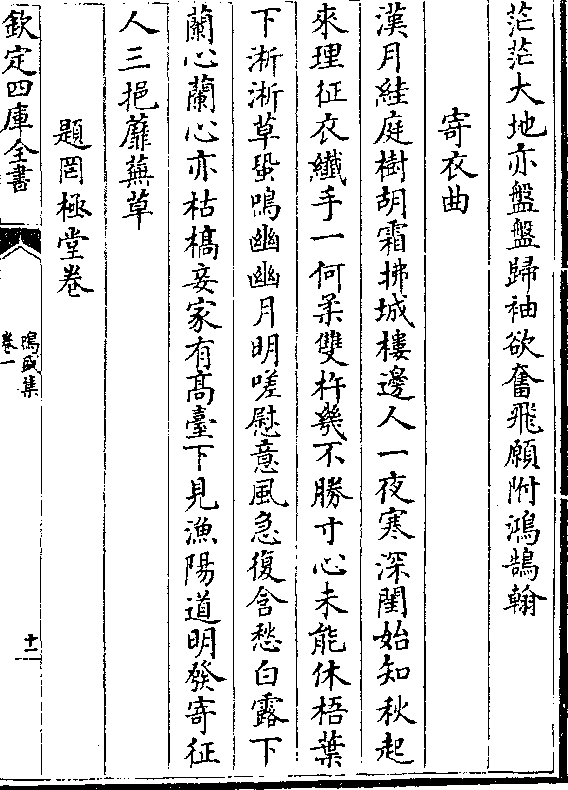 茫茫大地亦盤盤歸袖欲奮飛願附鴻鵠翰
寄衣曲
漢月絓庭樹胡霜拂城樓邊人一夜寒深閨始知秋起
來理征衣纖手一何柔雙杵幾不勝寸心未能休梧葉
下淅淅草蛩鳴幽幽月明嗟慰意風急復含愁白露下
蘭心蘭心亦枯槁妾家有髙臺下見漁陽道明發寄征
人三挹蘼蕪草
題罔極堂卷
欽定四庫全書
鳴盛集
卷一
十二